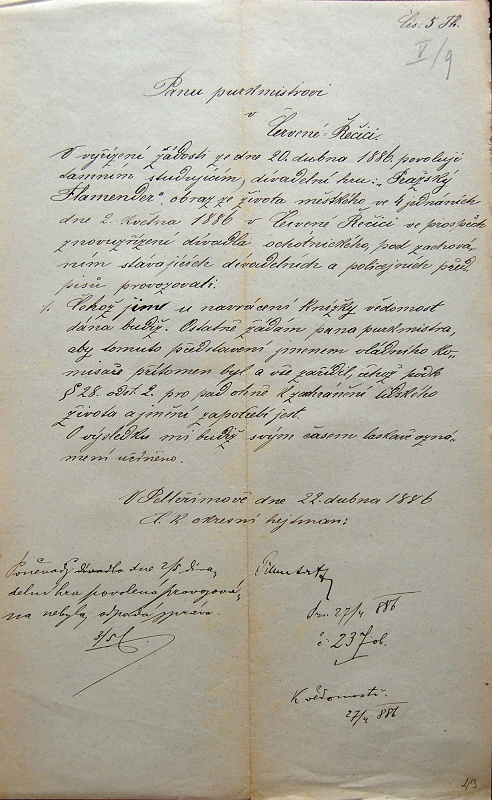 Čís. 5 Th.
V/9
Panu purkmistrovi
v
Červené Řečici.
V vyřízení žádosti ze dne 20. dubna 1886 povoluji
tamním studujícím, divadelní hru: „Pražský
Flamender“, obraz ze života městkého ve 4 jednáních
dne 2. května 1886 v Červené Řečici ve prospěch
znovuzřízení divadla ochotnického, pod zachová-
ním stávajících divadelních a policejních před-
pisů provozovati.
/. Čehož jsme u navrácení knížky vědomost
dána budiž. Ostatně žádám pana purkmistra,
aby tomuto představení jmenem vládního ko-
misaře přítomen byl a vše zařídil, čehož podle
§ 28. odst. 2. pro pád ohně k zachránění lidského
života a jmění zapotřebí jest.
O výsledku mi budiž svým časem laskavě ozná-
mení učiněno.
V Pelhřimově dne 22. dubna 1886
C. k. okresní hejtman:
Poněvadž divadlo dne 2/5 diva-
delní hra povolena provozová-
na nebyla, odpadá zpráva.
3/5
Pr. 27/4 886
č. 237 ob.
K vědomosti.
27/4 886
43